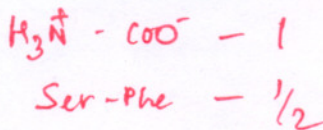 H₃N⁺ - COO⁻ - 1
Ser-Phe - 1/2